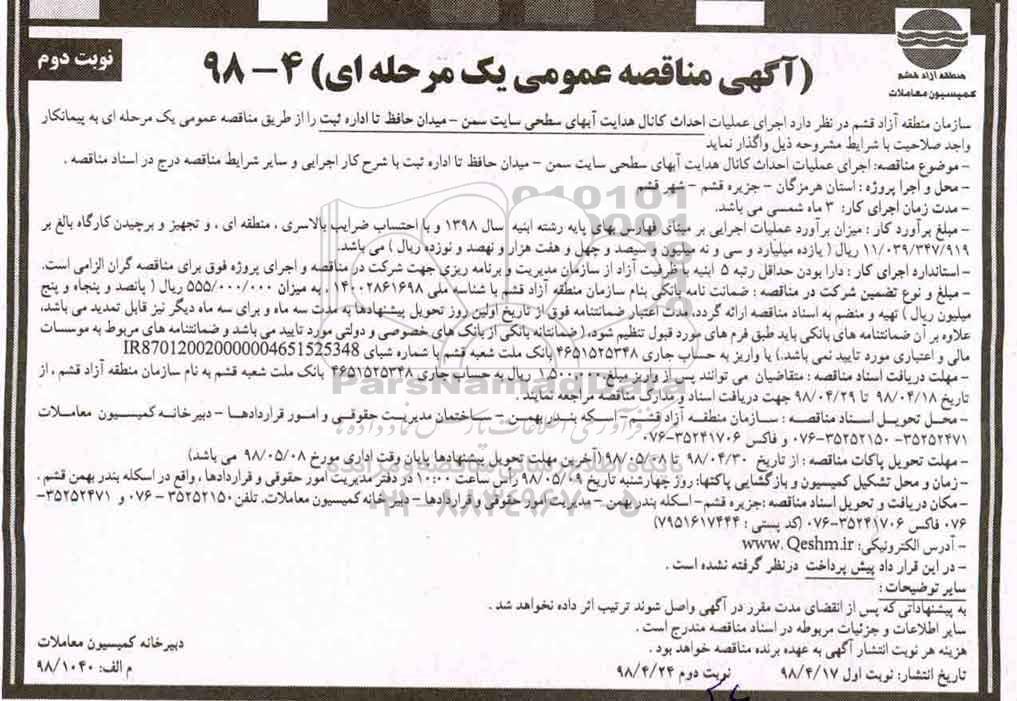 منطقه آزاد قشم
کمیسیون معاملات
نوبت دوم
(آگهی مناقصه عمومی یک مرحله ای) ۴ - ۹۸
سازمان منطقه آزاد قشم در نظر دارد اجرای عملیات احداث کانال هدایت آبهای سطحی سایت سمن - میدان حافظ تا اداره ثبت را از طریق مناقصه عمومی یک مرحله ای به پیمانکار
واجد صلاحیت با شرایط مشروحه ذیل واگذار نماید
- موضوع مناقصه: اجرای عملیات احداث کانال هدایت آبهای سطحی سایت سمن - میدان حافظ تا اداره ثبت با شرح کار اجرایی و سایر شرایط مناقصه درج در اسناد مناقصه .
- محل و اجرا پروژه : استان هرمزگان - جزیره قشم - شهر قشم
- مدت زمان اجرای کار: ۳ ماه شمسی می باشد.
- مبلغ برآورد کار : میزان برآورد عملیات اجرایی بر مبنای فهارس بهای پایه رشته ابنیه سال ۱۳۹۸ و با احتساب ضرایب بالاسری ، منطقه ای ، و تجهیز و برچیدن کارگاه بالغ بر
۱۱/۰۳۹/۳۴۷/۹۱۹ ریال ( یازده میلیارد و سی و نه میلیون و سیصد و چهل و هفت هزار و نهصد و نوزده ریال ) می باشد.
- استاندارد اجرای کار : دارا بودن حداقل رتبه ۵ ابنیه با ظرفیت آزاد از سازمان مدیریت و برنامه ریزی جهت شرکت در مناقصه و اجرای پروژه فوق برای مناقصه گران الزامی است.
- مبلغ و نوع تضمین شرکت در مناقصه : ضمانت نامه بانکی بنام سازمان منطقه آزاد قشم با شناسه ملی ۱۴۰۰۲۸۶۱۶۹۸ ، به میزان ۵۵۵/۰۰۰/۰۰۰ ریال ( پانصد و پنجاه و پنج
میلیون ریال ) تهیه و منضم به اسناد مناقصه ارائه گردد. مدت اعتبار ضمانتنامه فوق از تاریخ اولین روز تحویل پیشنهادها به مدت سه ماه و برای سه ماه دیگر نیز قابل تمدید می باشد،
علاوه بر آن ضمانتنامه های بانکی باید طبق فرم های مورد قبول تنظیم شود، ( ضمانتانه بانکی از بانک های خصوصی و دولتی مورد تایید می باشد و ضمانتنامه های مربوط به موسسات
مالی و اعتباری مورد تایید نمی باشد.) یا واریز به حساب جاری ۴۶۵۱۵۲۵۳۴۸ بانک ملت شعبه قشم با شماره شبای IR870120020000004651525348
- مهلت دریافت اسناد مناقصه : متقاضیان می توانند پس از واریز مبلغ ۱,۵۰۰,۰۰۰ ریال به حساب جاری ۴۶۵۱۵۲۵۳۴۸ بانک ملت شعبه قشم به نام سازمان منطقه آزاد قشم ، از
تاریخ ۹۸/۰۴/۱۸ تا ۹۸/۰۴/۲۹ جهت دریافت اسناد و مدارک مناقصه مراجعه نمایند .
- محل تحویل اسناد مناقصه : سازمان منطقه آزاد قشم - اسکه بندر بهمن - ساختمان مدیریت حقوقی و امور قراردادها - دبیرخانه کمیسیون معاملات
۳۵۲۵۲۴۷۱-۰۷۶-۳۵۲۵۲۱۵۰ و فاکس ۳۵۲۴۱۷۰۶-۰۷۶
- مهلت تحویل پاکات مناقصه : از تاریخ ۹۸/۰۴/۳۰ تا ۹۸/۰۵/۰۸(آخرین مهلت تحویل پیشنهادها پایان وقت اداری مورخ ۹۸/۰۵/۰۸ می باشد)
- زمان و محل تشکیل کمیسیون و بازگشایی پاکتها: روز چهارشنبه تاریخ ۹۸/۰۵/۰۹ رأس ساعت ۱۰:۰۰ در دفتر مدیریت امور حقوقی و قراردادها ، واقع در اسکله بندر بهمن قشم .
- مکان دریافت و تحویل اسناد مناقصه :جزیره قشم- اسکله بندر بهمن - مدیریت امور حقوقی و قراردادها - دبیرخانه کمیسیون معاملات. تلفن ۳۵۲۵۲۱۵۰ - ۰۷۶ و ۳۵۲۵۲۴۷۱-
۰۷۶ فاکس ۳۵۲۴۱۷۰۶-۰۷۶ (کد پستی : ۷۹۵۱۶۱۷۴۴۴)
- آدرس الکترونیکی: www. Qeshm.ir
- در این قرار داد پیش پرداخت درنظر گرفته نشده است .
سایر توضیحات :
به پیشنهاداتی که پس از انقضای مدت مقرر در آگهی واصل شوند ترتیب اثر داده نخواهد شد .
سایر اطلاعات و جزئیات مربوطه در اسناد مناقصه مندرج است .
هزینه هر نوبت انتشار آگهی به عهده برنده مناقصه خواهد بود .
تاریخ انتشار: نوبت اول ۹۸/۴/۱۷ نوبت دوم ۹۸/۴/۲۴
دبیرخانه کمیسیون معاملات
م الف: ۹۸/۱۰۴۰
ParsNamadData
پایگاه اطلاع رسانی مناقصه و مزایده
۰۲۱-۸۸۳۴۹۶۷۰-۵